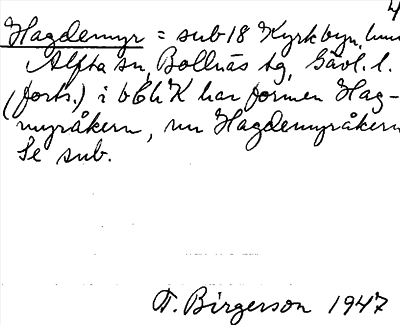 4
Hagdemyr = sub 18 Kyrkbyn,
Alfta sn, Bollnäs tg, Gävl. l.
(forts.) i bChK har formen Hag-
myråkern, nu Hagdemyråkern
Se sub.
T. Birgerson 1947